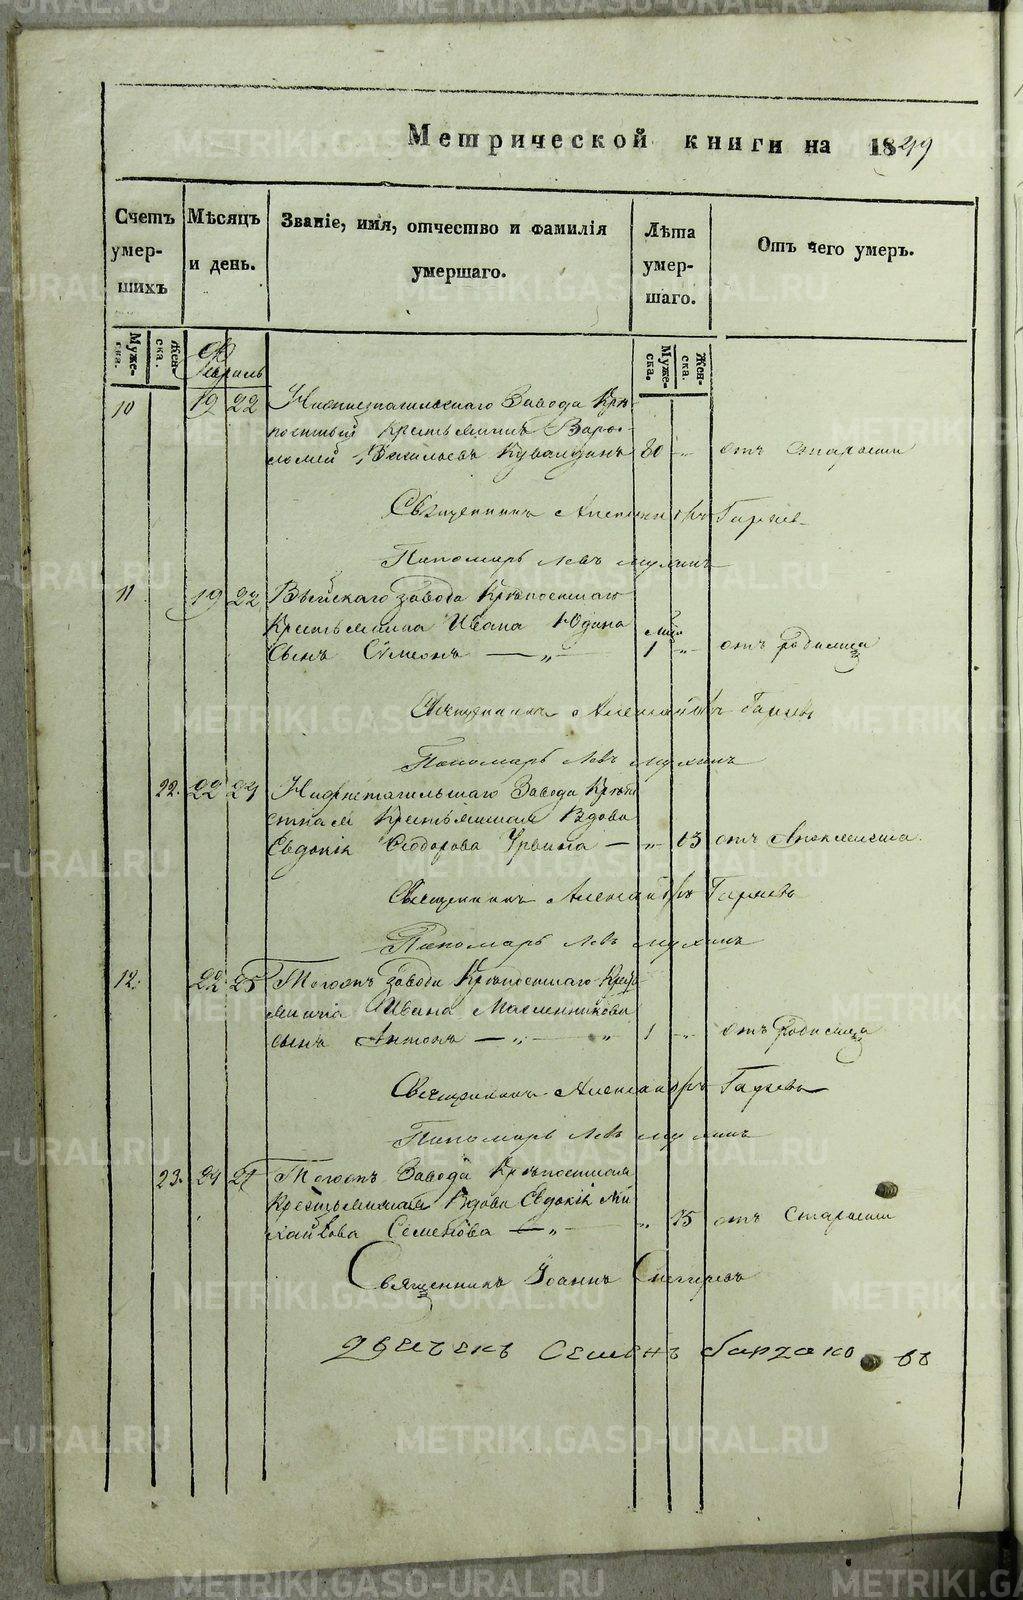 Метрической книги на 1849
Счетъ умер- шихъ
Мѣсяцъ и день.
Званіе, имя, отчество и фамилія умершаго.
Лѣта умер- шаго.
Отъ чего умеръ.
Муже- ска.
Жен- ска.
Муже- ска.
Жен- ска.
10 19 22 Нижнетагильскаго Завода Крѣ-
постный Крестьянинъ Варѳо-
ломей Васильевъ 80 „ отъ старости
Священникъ Александръ
Пономарь Левъ
11 19 22 Выйскаго завода Крѣпостнаго
Крестьянина Ивана Юдина
Сынъ Сѵмеонъ — „ 1 „ отъ родимца
Священникъ Александръ
Пономарь Левъ
22. 22 24 Нижнетагильскаго Завода Крѣпо
стная Крестьянская Вдова
Евдокія Ѳеодорова — „ отъ
Священникъ Александръ
Пономарь Левъ
12. 22 25 Тогожъ завода Крѣпостнаго Кресть
янина Ивана Масленникова
сынъ Антонъ — „ — „ 1 „ отъ родимца
Священникъ Александръ
Пономарь Левъ
23. 24 27 Тогожъ Завода Крѣпостная
Крестьянская Вдова Евдокія Ми
хайлова Семенова — „ „ 75 отъ Старости
Священникъ Іоаннъ Снегиревъ
Дьячекъ Семенъ
METRIKI.GASO-URAL.RU